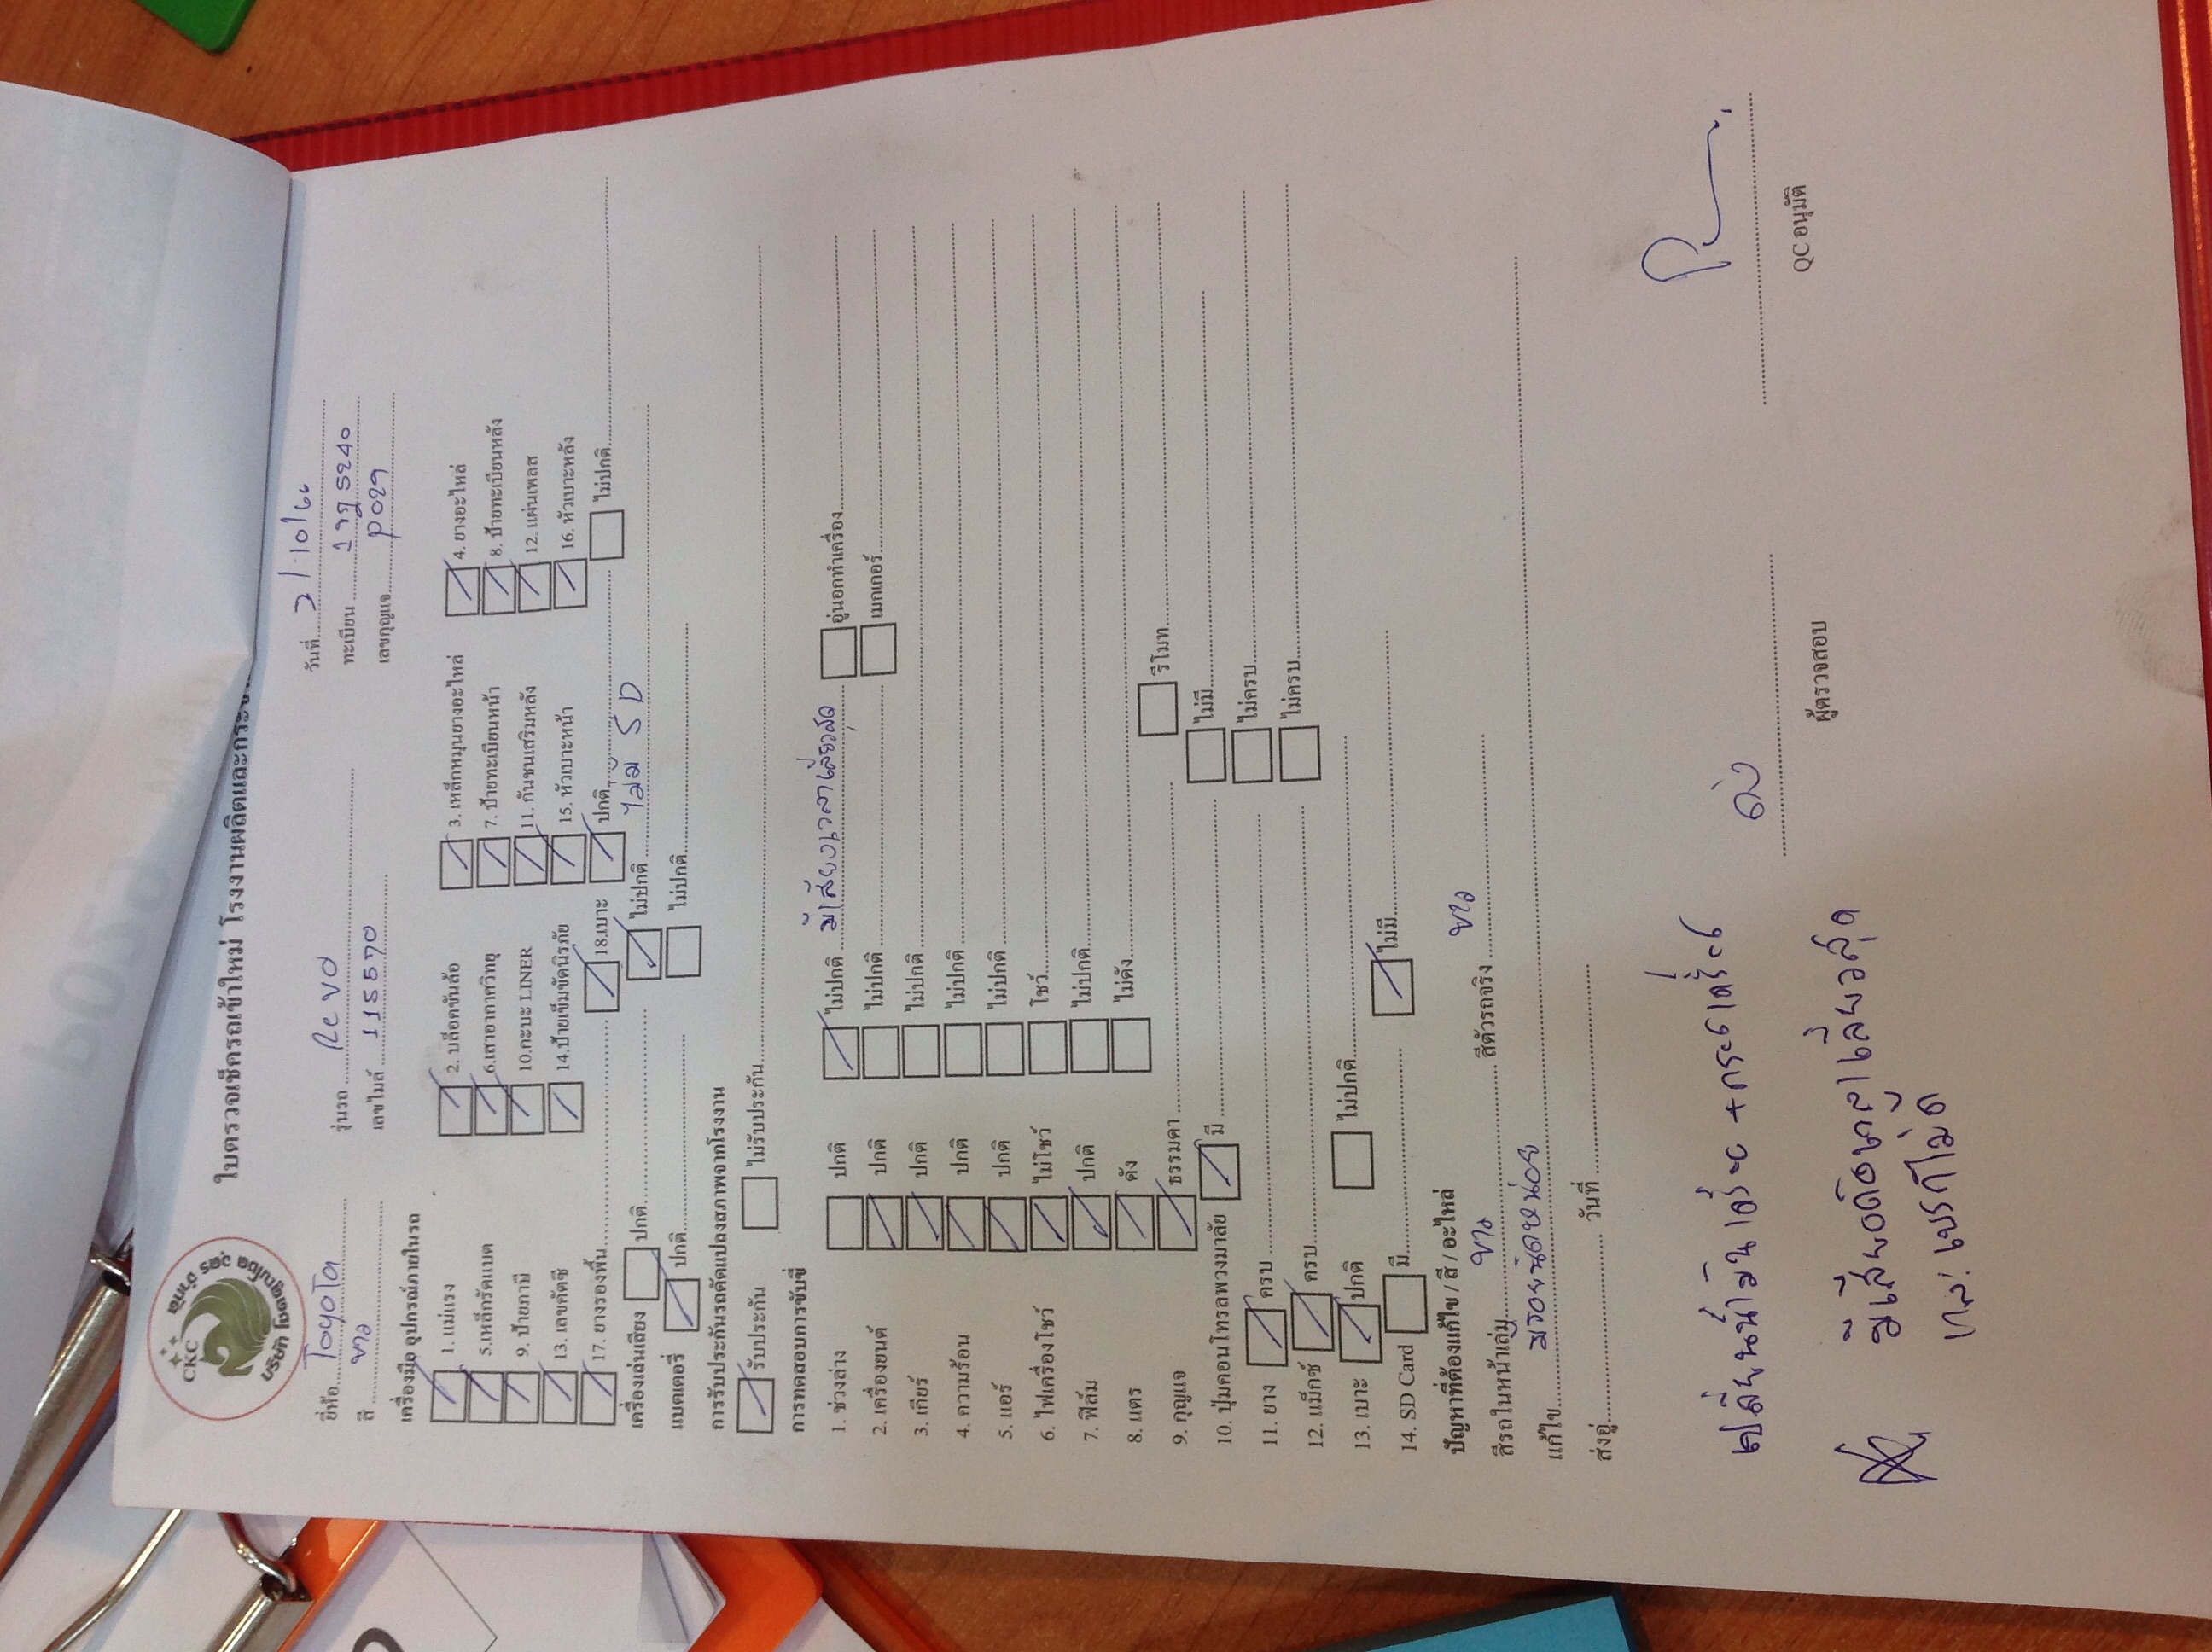 CKC
บริษัท โชคคูณโชค คาร์ จำกัด
ใบตรวจเช็ครถเข้าใหม่ โรงงานผลิตและกระจาย
วันที่ 21/10/66
ยี่ห้อ TOYOTA รุ่นรถ Revo ทะเบียน 5240
สี ขาว เลขไมล์ 115570 เลขกุญแจ P029
เครื่องมือ อุปกรณ์ภายในรถ
1. แม่แรง 2. บล็อคขันล้อ 3. เหล็กหมุนยางอะไหล่ 4. ยางอะไหล่
5.เหล็กรัดแบต 6.เสาอากาศวิทยุ 7. ป้ายทะเบียนหน้า 8. ป้ายทะเบียนหลัง
9. ป้ายภาษี 10.กะบะ LINER 11. กันชนเสริมหลัง 12. แผ่นเพลส
13. เลขคัตซี 14.ป้ายเข็มขัดนิรภัย 15. หัวเบาะหน้า 16. หัวเบาะหลัง
17. ยางรองพื้น 18.เบาะ ปกติ ไม่ปกติ
เครื่องเล่นเสียง ปกติ ไม่ปกติ ไม่มี SD
แบตเตอรี่ ปกติ ไม่ปกติ
การรับประกันรถดัดแปลงสภาพจากโรงงาน
รับประกัน ไม่รับประกัน
การทดสอบการขับขี่
1. ช่วงล่าง ปกติ ไม่ปกติ มีเสียงเวลาเลี้ยวสุด อู่นอกทำเครื่อง
2. เครื่องยนต์ ปกติ ไม่ปกติ เมกเกอร์
3. เกียร์ ปกติ ไม่ปกติ
4. ความร้อน ปกติ ไม่ปกติ
5. แอร์ ปกติ ไม่ปกติ
6. ไฟเครื่องโชว์ ไม่โชว์ โชว์
7. ฟิล์ม ปกติ ไม่ปกติ
8. แตร ดัง ไม่ดัง
9. กุญแจ ธรรมดา รีโมท
10. ปุ่มคอนโทรลพวงมาลัย มี ไม่มี
11. ยาง ครบ ไม่ครบ
12. แม็กซ์ ครบ ไม่ครบ
13. เบาะ ปกติ ไม่ปกติ
14. SD Card มี ไม่มี
ปัญหาที่ต้องแก้ไข / สี / อะไหล่
สีรถในหน้าเล่ม ขาว สีตัวรถจริง ขาว
แก้ไข มีรอยนิดหน่อย
ส่งอู่ วันที่
เปลี่ยนน้ำมันเครื่อง + กรองเครื่อง
ผู้ตรวจสอบ QC อนุมัติ
มีเสียงดังเวลาเลี้ยวสุด
และเบรกไม่